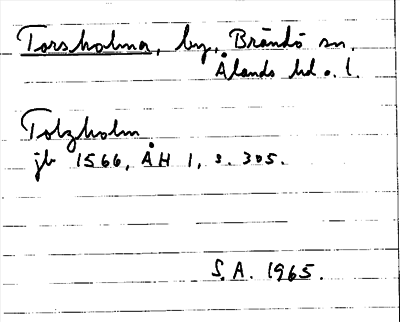 Torsholma, by, Brändö sn.
Ålands hd o. l.
Totzholm
jb 1566, ÅH 1, s. 305.
S.A. 1965.